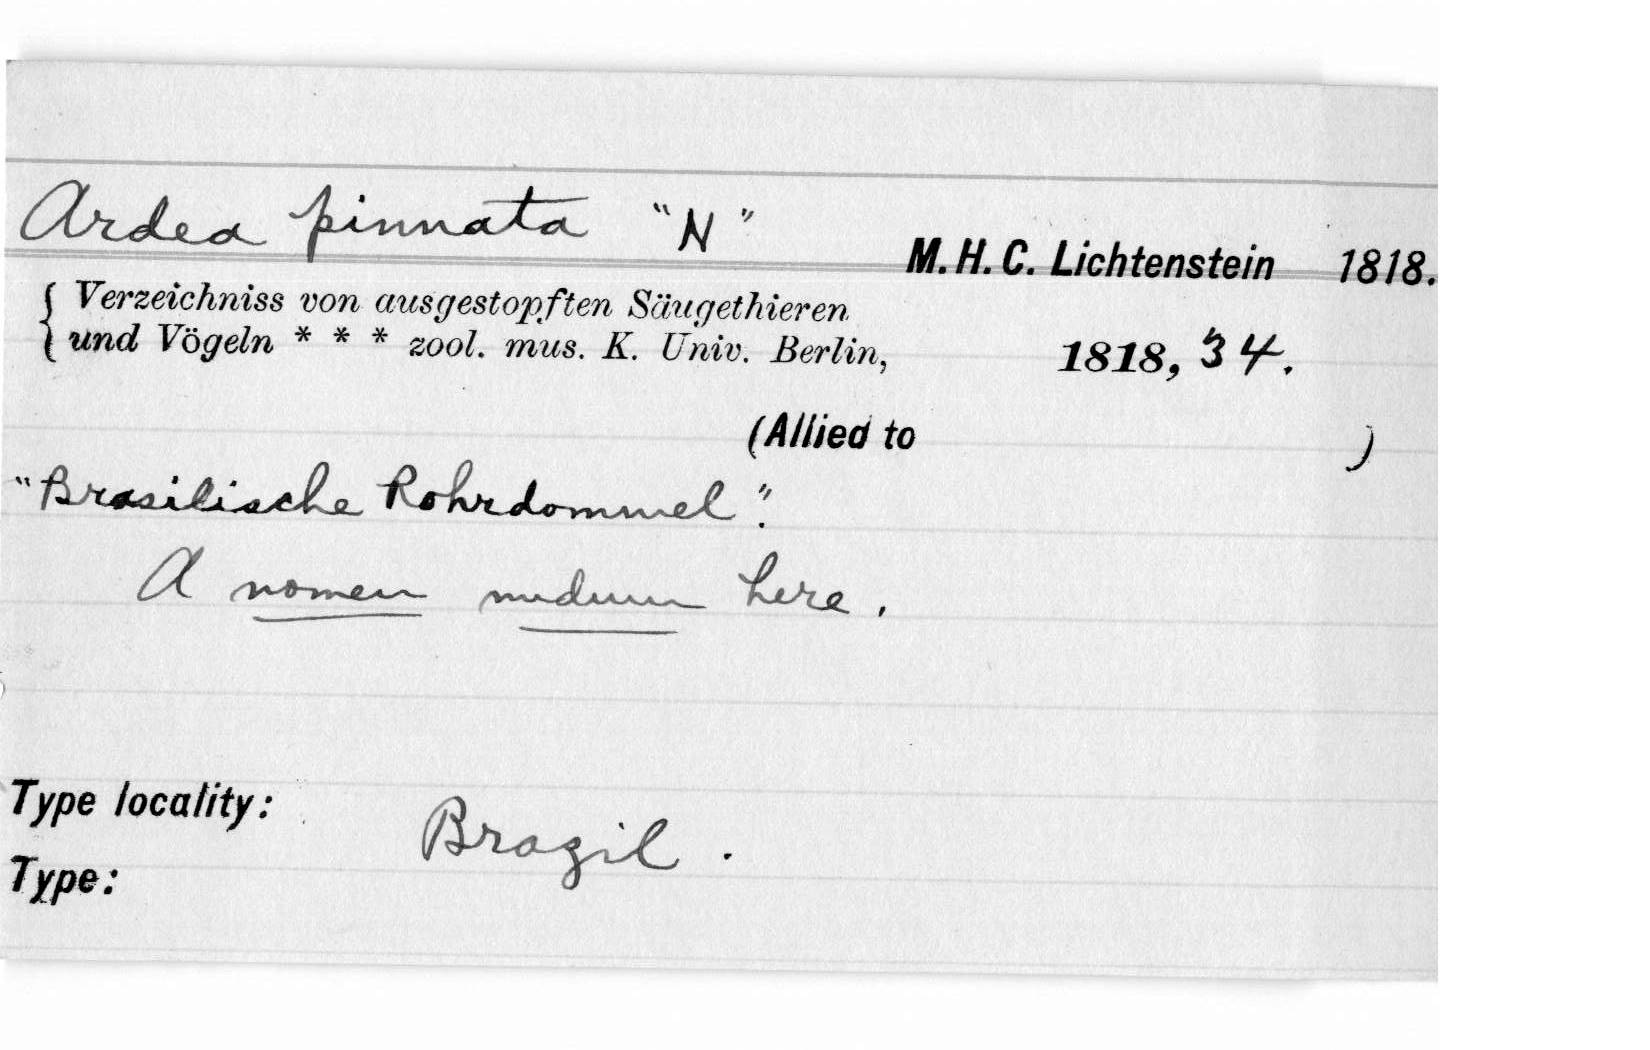 Ardea pinnata "N"
M. H. C. Lichtenstein 1818.
{ Verzeichniss von ausgestopften Säugethieren
und Vögeln * * * zool. mus. K. Univ. Berlin, 1818, 34.
(Allied to )
"Brasilische Rohrdommel".
A nomen nudum here.
Type locality: Brazil.
Type: